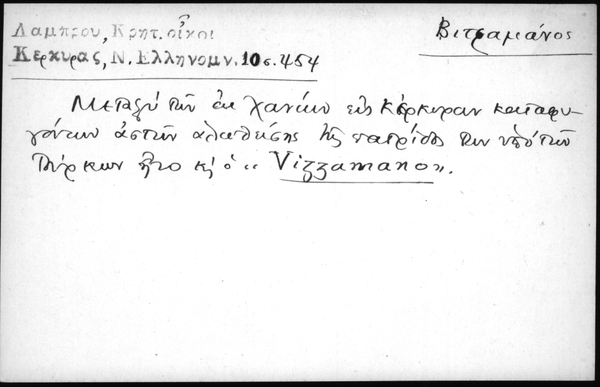 Λαμπρου, Κρητ. οἶκοι
Κερκυρας, Ν. Ελληνομν. 10 σ. 454
Βιτζαμάνος
Μεταξύ τῶν ἐκ Χανίων εἰς Κέρκυραν καταφυ-
γόντων ἀστῶν ἁλωθείσης τῆς πατρίδος των ὑπὸ τῶν
Τούρκων ἦτο κ̧ ὁ « Vizzamano».